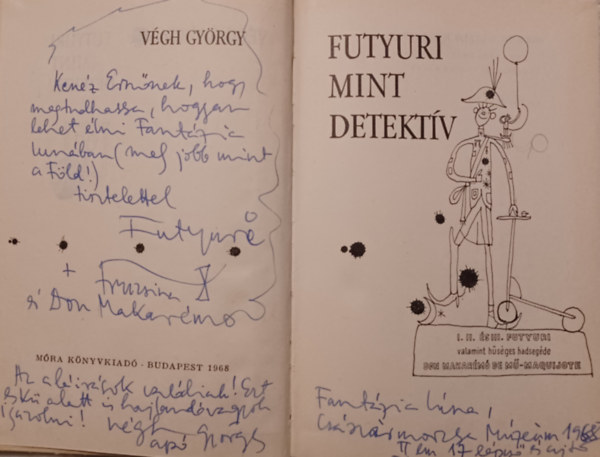 VÉGH GYÖRGY
Kenéz Ernőnek, hogy
megtudhassa, hogyan
lehet élni Fantázia
lunában (mely jobb mint
a Föld!)
tisztelettel
Futyuri
+ Fruzsina
és Don Makarémo
MÓRA KÖNYVKIADÓ · BUDAPEST 1968
Az aláírások valódiak! Ezt
eskü alatt is hajlandó vagyok
igazolni! Végh
apó György
FUTYURI
MINT
DETEKTÍV
I. II. ÉS III. FUTYURI
valamint hűséges hadsegéde
DON MAKARÉMÓ DE MŰ-MAQUIJOTE
Fantázia luna,
Császármorzsa Múzeum 1968
II em 17 lépcső és ajtó